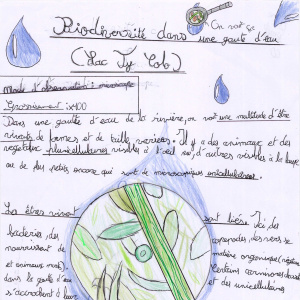 Biodiversité dans une goutte d'eau
(Lac Ty Colo)
Mode d'observation : microscope
Grossissement : x400
Dans une goutte d'eau de la rivière, on voit une multitude d'être
vivants de formes et de taille variées. Il y a des animaux et des
végétaux pluricellulaires visibles à l'oeil nu, d'autres visibles à la loupe
ou de plus petits encore qui sont de microscopiques unicellulaires.
Les êtres vivant sont liés. Ici des
bactéries, des des vers se
nourrissent de matière organique (végétaux
et animaux morts). Certains carnivores
dans la goutte d'eau et des unicellulaires
s'accrochent à leur